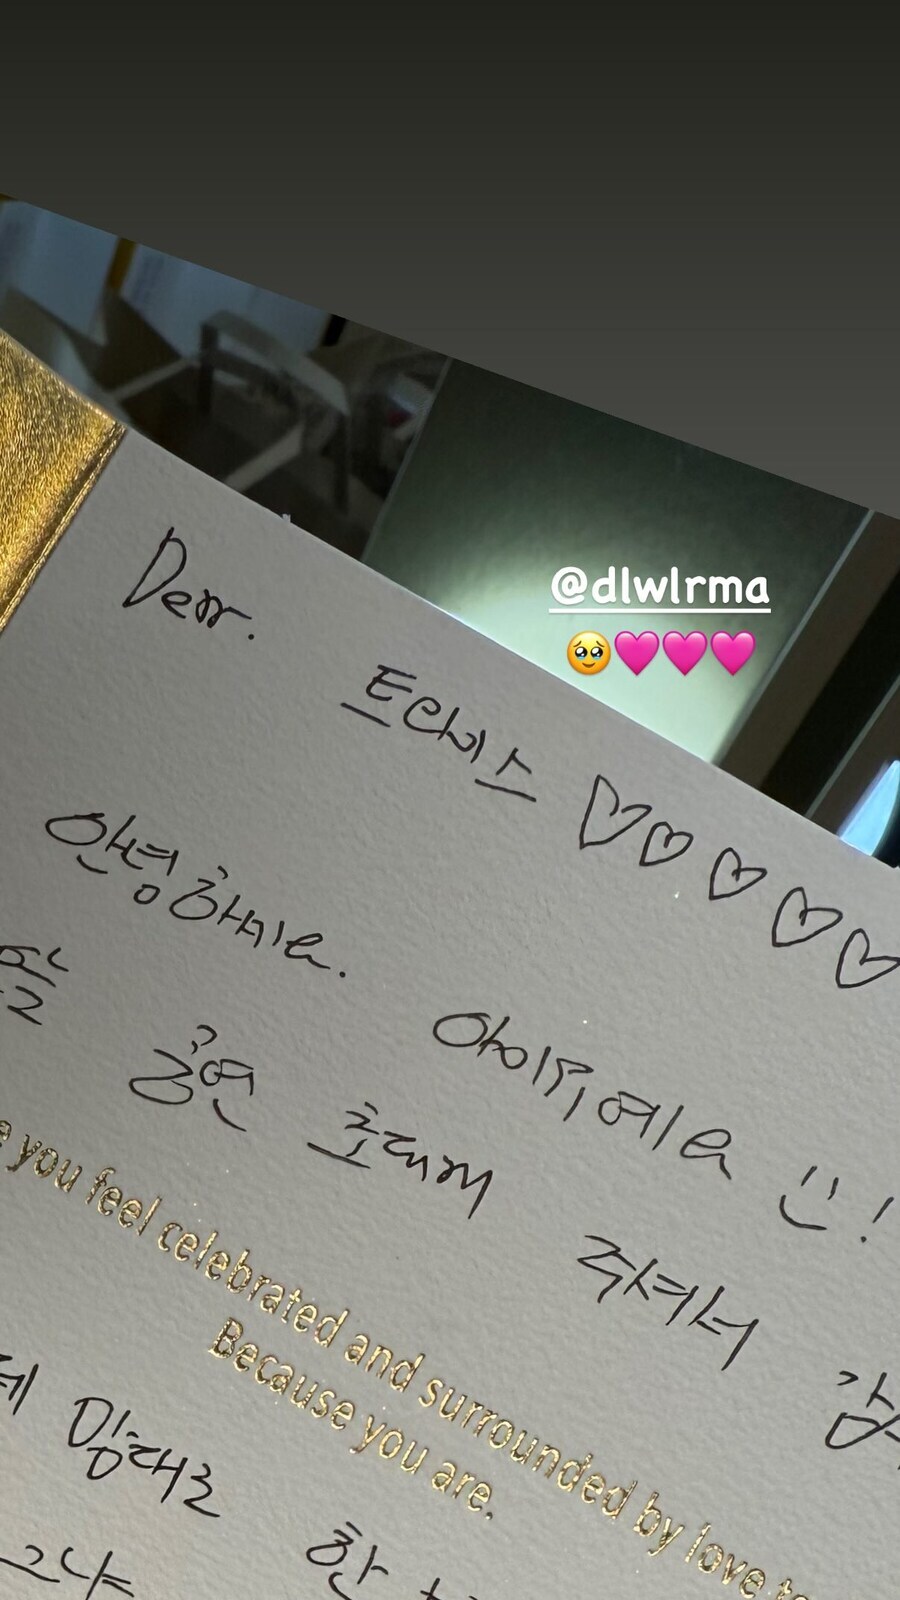 @dlwlrma
🥹🩷🩷🩷
Dear.
트와이스 ♡♡♡♡♡
안녕하세요. 아이유예요 !
공연 초대해 주셔서
you feel celebrated and surrounded by love
Because you are.
맘대로 한
그냥